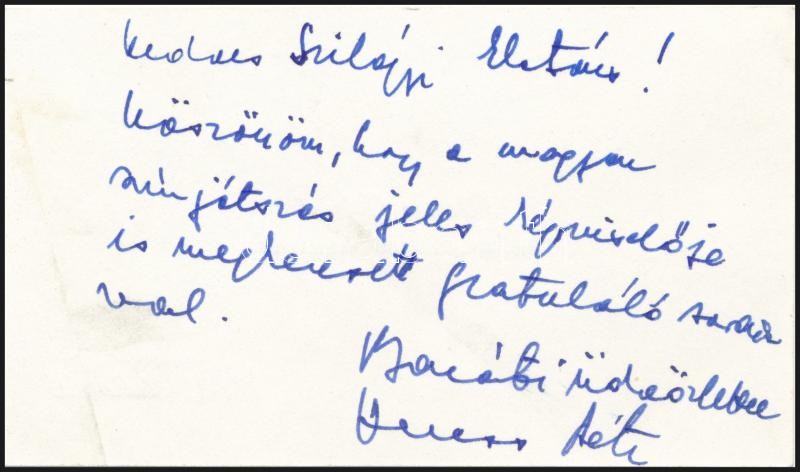 Kedves Szilágyi Elvtárs!
Köszönöm, hogy a magyar
színjátszás jeles képviselője
is megkeresett gratuláló sorai-
val.
Baráti üdvözlettel
Veress Péter